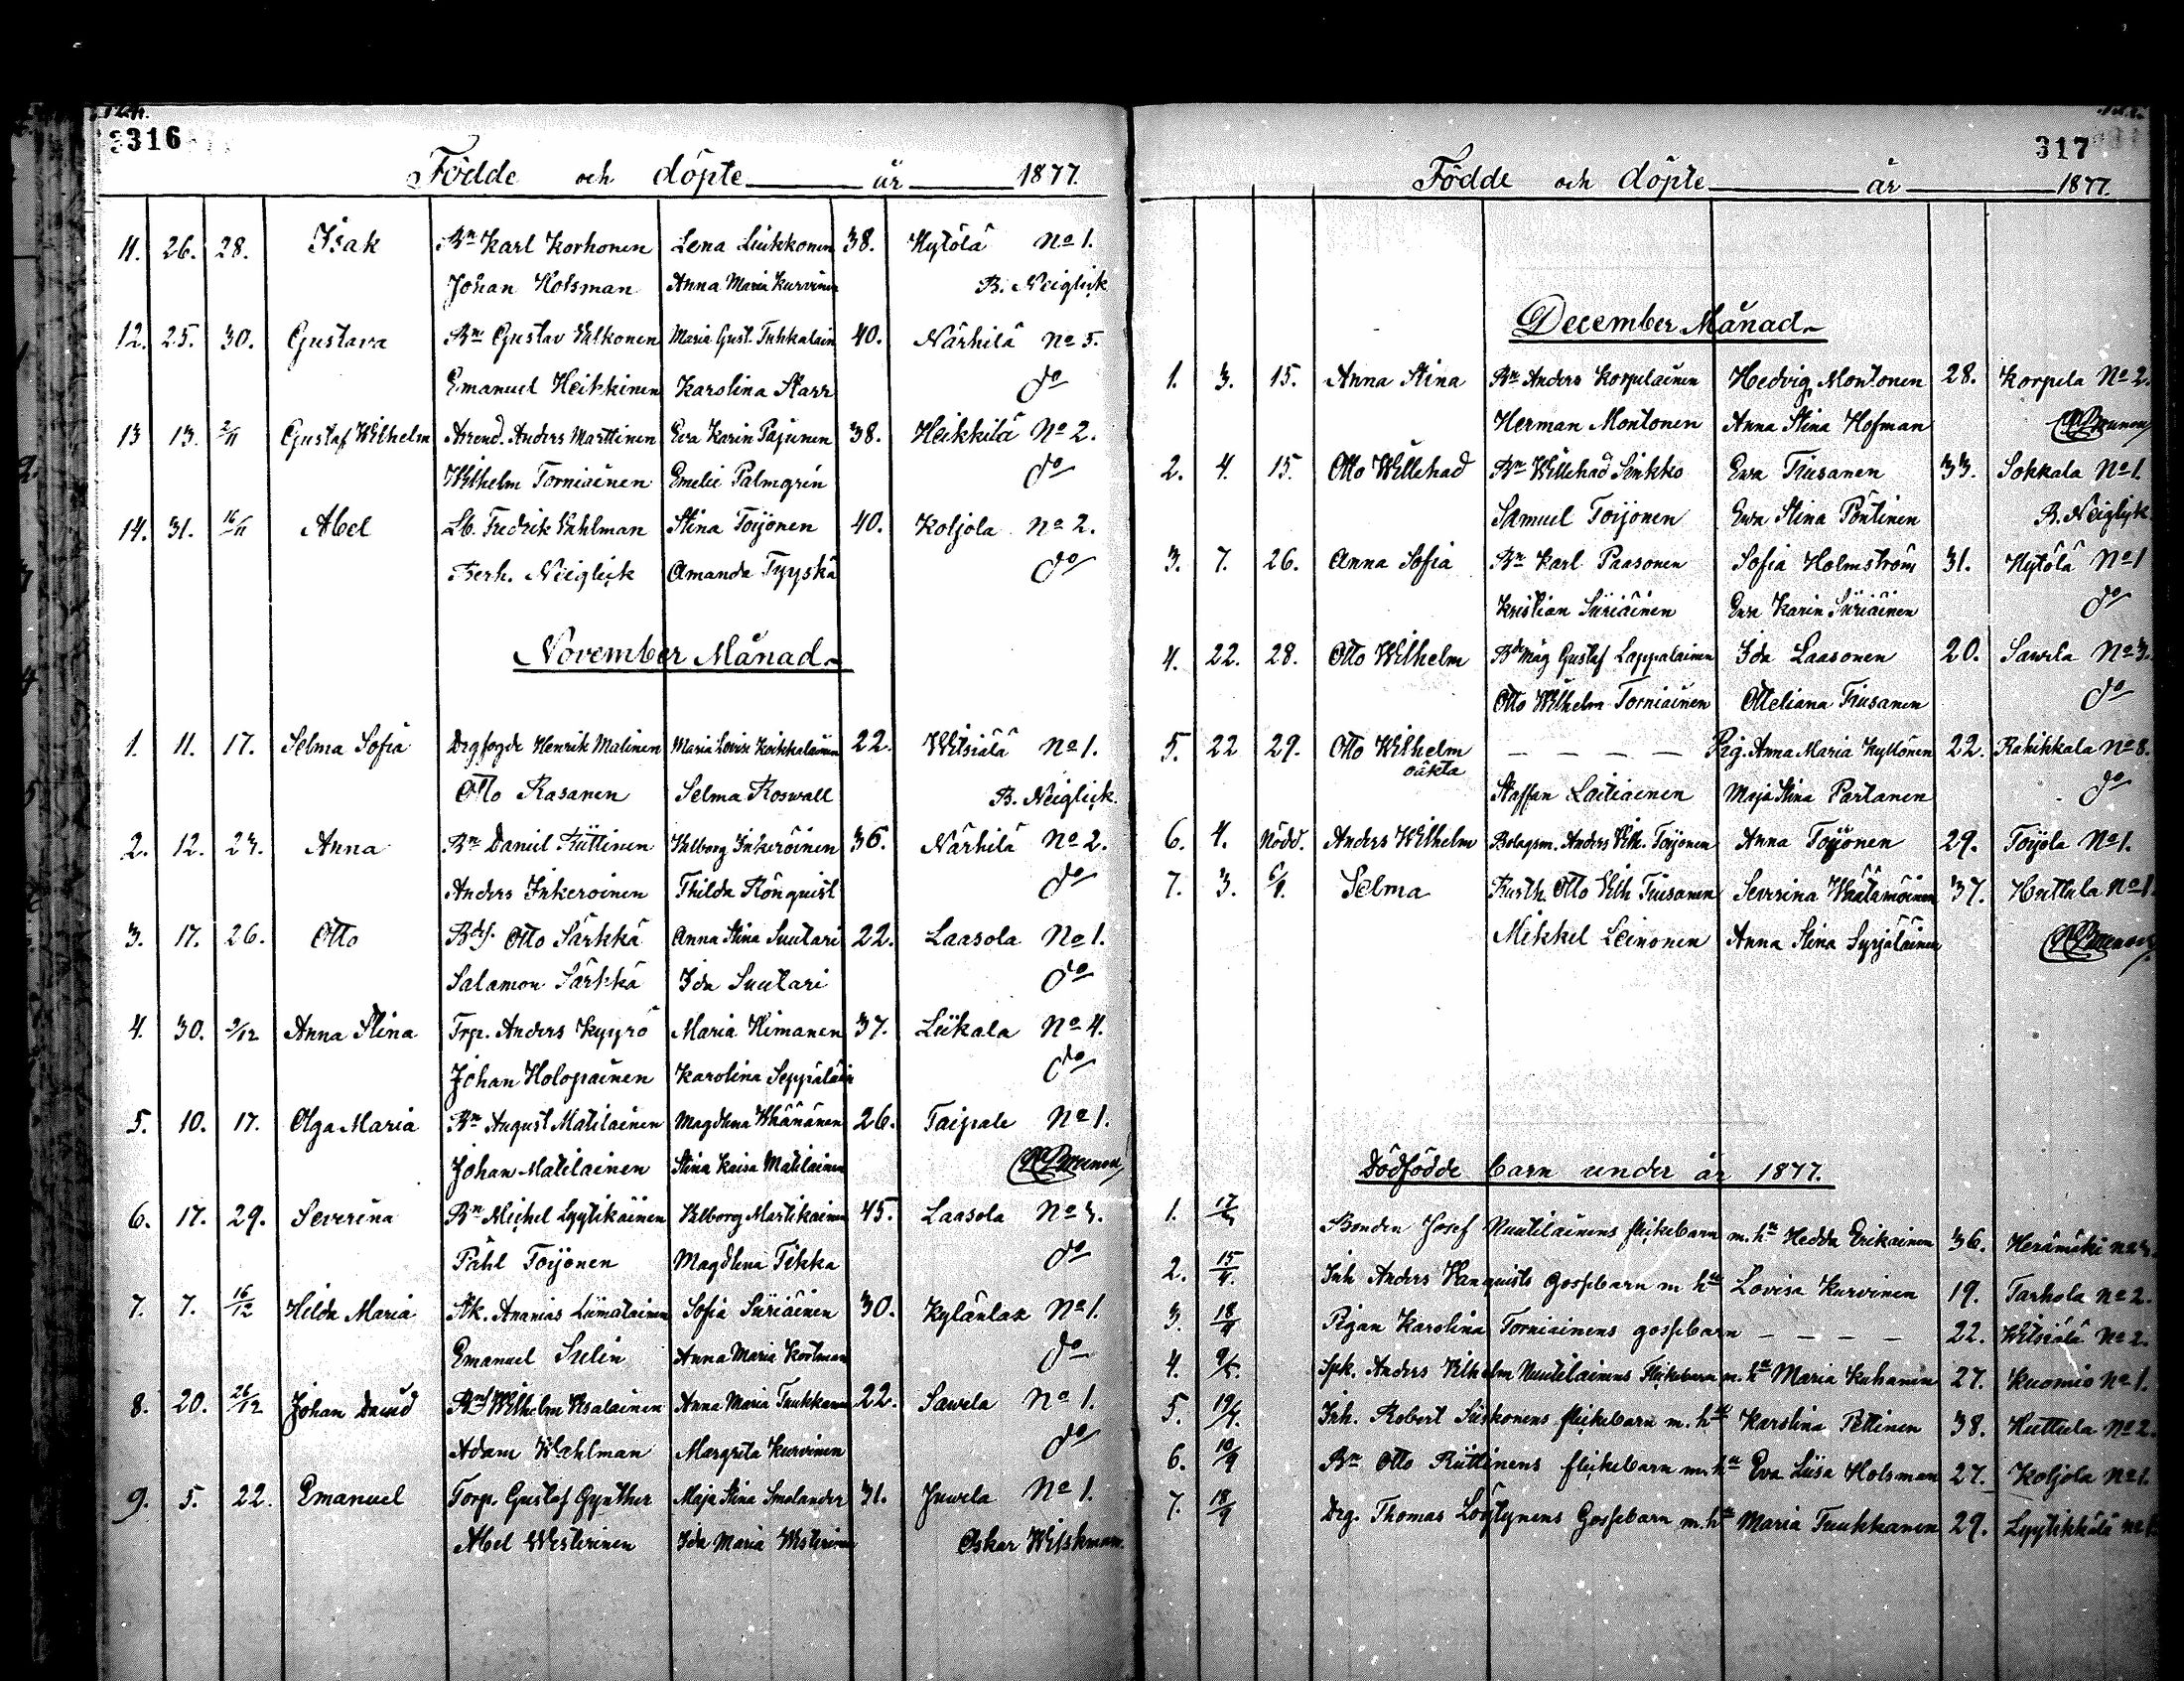 316
Födde och döpte år 1877.
11. 26. 28. Isak Bn Karl Korhonen Lena Liukkonen 38. Hytölä No 1.
Johan Hotsman Anna Maria Kurvinen B. Neiglick
12. 25. 30. Gustava Bn Gustav Valkonen Maria Gust. Tuhkalain 40. Närhilä No 5.
Emanuel Heikkinen Karolina Starr do
13 13. 2/11 Gustaf Wilhelm Arrend. Anders Marttinen Eva Karin Pajunen 38. Heikkilä No 2.
Wilhelm Torniainen Emelie Palmgrén do
14. 31. 16/11 Abel Lb. Fredrik Vahlman Stina Toijonen 40. Koljola No 2.
Berh. Neiglick Amanda Tyyskä do
November Månad
1. 11. 17. Selma Sofia Drgfogde Henrik Malinen Maria Lovisa Koikkalainen 22. Witsiälä No 1.
Otto Rasanen Selma Roswall B. Neiglick.
2. 12. 23. Anna Bn Daniel Riittinen Valborg Inkeröinen 36. Närhilä No 2.
Anders Inkeroinen Thilda Rönquist do
3. 17. 26. Otto Bds. Otto Särkkä Anna Stina Suutari 22. Laasola No 1.
Salamon Särkkä Ida Suutari do
4. 30. 2/12 Anna Stina Trp. Anders Kyyrö Maria Himanen 37. Liikala No 4.
Johan Holopainen Karolina Seppäläin do
5. 10. 17. Olga Maria Bn August Matilainen Magdlena Vhänänen 26. Taipale No 1.
Johan Matilainen Stina Kaisa Matilainen
6. 17. 29. Severina Bn Michel Lyytikäinen Valborg Martikainen 45. Laasola No 3.
Påhl Toijonen Magdlena Tikka do
7. 7. 16/12 Hilda Maria Stk. Ananias Liimatainen Sofia Siiriäinen 30. Kylänlax No 1.
Emanuel Sulin Anna Maria Kortman do
8. 20. 26/12 Johan David Wilhelm Vesalainen Anna Maria Tuukkanen 22. Sawela No 1.
Adam Wahlman Margreta Kurvinen do
9. 5. 22. Emanuel Torp. Gustaf Gynther Maja Stina Smolander 31. Juwela No 1.
Abel Westerinen Ida Maria Westerinen Oskar Wilskman.
317
Födde och döpte år 1877.
December Månad
1. 3. 15. Anna Stina Bn Anders Korpelainen Hedvig Montonen 28. Korpela No 2.
Herman Montonen Anna Stina Hofman
2. 4. 15. Otto Willehad Bn Willehad Sinkko Ewa Tiusanen 33. Sokkala No 1.
Samuel Toijonen Ewa Stina Pöntinen B. Neiglick
3. 7. 26. Anna Sofia Bn Karl Paasonen Sofia Holmström 31. Hytölä No 1
Kristian Siiriäinen Ewa Karin Siiriäinen do
4. 22. 28. Otto Wilhelm Bdemåg Gustaf Lappalainen Ida Laasonen 20. Sawela No 3.
Otto Wilhelm Torniainen Otteliana Tiusanen do
5. 22 29. Otto Wilhelm — — — — Pig. Anna Maria Kyllönen 22. Rahikkala No 8.
oäkta
Staffan Laitiainen Maja Stina Partanen do
6. 4. Nödd. Anders Wilhelm Bolagsm. Anders Vilh. Toijonen Anna Toijonen 29. Toijola No 1.
7. 3. 6/1. Selma Otto Vilh Tiusanen Severina Väätämöinen 37. Huttula No 1
Mikkel Leinonen Anna Stina Syrjäläinen
Dödfödde barn under år 1877.
1. 17/3 Bonden Josef Nuutilainens flickebarn m. hu Hedda Erikainen 36. Herämäki No 3.
2. 15/4. Inh Anders Vanquists Gossebarn m hu Lovisa Kurvinen 19. Tarhola No 2.
3. 18/4 Pigan Karolina Torniainens gossebarn — — — — 22. Witsiälä No 2.
4. 9/5. Spk. Anders Vilhelm Nuutilainens Flickebarn m. hu Maria Kuhanen 27. Kuomio No 1.
5. 19/7. Inh. Robert Siiskonens flickebarn m. hu Karolina Pettinen 38. Huttula No 2.
6. 10/9 Bn Otto Riittinens flickebarn m. hu Eva Liisa Holsman 27. Koljola No 1.
7. 18/9 Drg. Thomas Löytynens Gossebarn m. hu Maria Tuukkanen 29. Lyytikkälä No